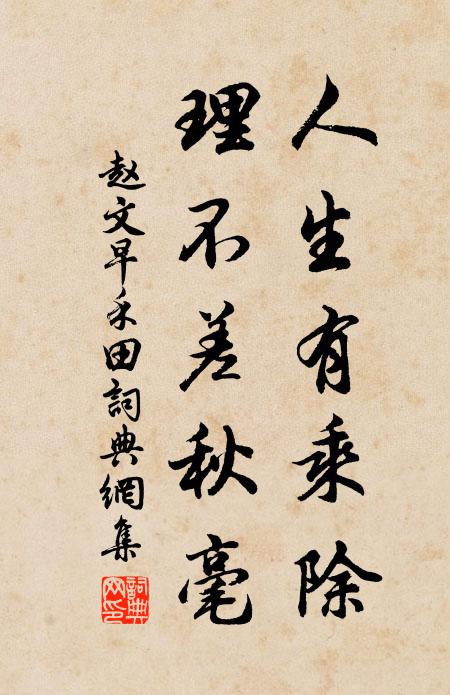 人生有乘除
理不差秋毫
赵文早禾田詞典網集
詞典網印